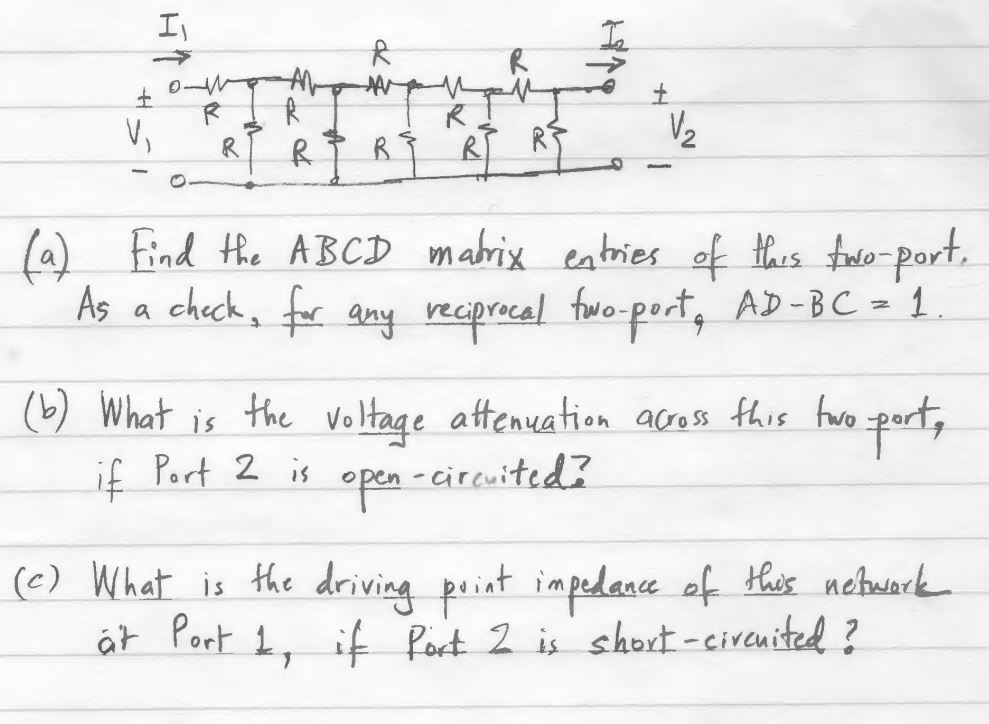 I1
I2
R
R
+
+
R
R
R
V1
V2
R
R
R
R
R
-
-
(a) Find the ABCD matrix entries of this two-port.
As a check, for any reciprocal two-port, AD-BC = 1.
(b) What is the voltage attenuation across this two port,
if Port 2 is open-circuited?
(c) What is the driving point impedance of this network
at Port 1, if Port 2 is short-circuited?